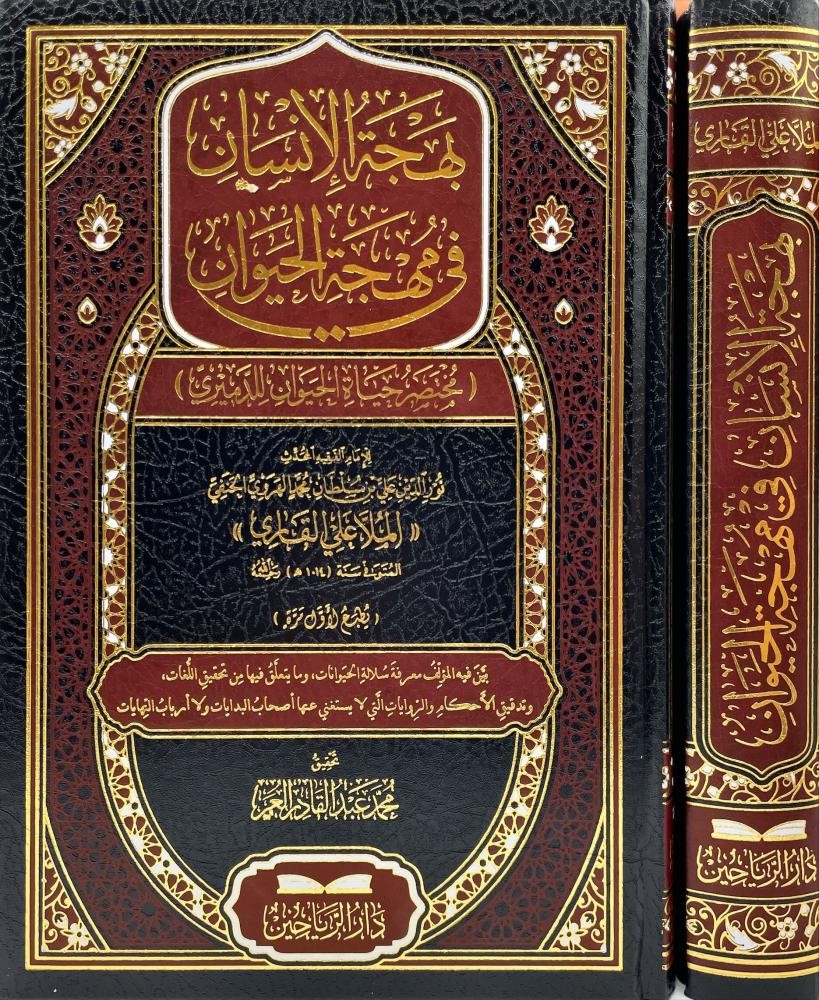 بَهْجَةُ الإِنْسَانِ
فِي مُهْجَةِ الحَيَوَانِ
(مُختَصَر حَيَاة الحَيَوان للدَّميْري)
للإمام الفقيه المحدّث
نُور الدّين علي بن سُلطان محمّد الهَروي الحَنفي
«المُلّا عَلي القَاري»
المتوفى سَنة (١٠١٤ هـ) رحمه الله
(يُطبَع لأوّل مَرّة)
بيَّن فيه المؤلِّفُ معرفةَ سُلالةِ الحيوانات، وما يتعلَّقُ فيها مِن تحقيقِ اللُّغات،
وتدقيقِ الأحكامِ والرِّواياتِ الَّتي لا يستغني عنها أصحابُ البداياتِ ولا أربابُ النِّهايات
تحقيقُ
محمّد عَبْد القَادر العمر
دَارُ الرَّيَاحِين
المُلّا عَلي القَاري
بَهْجَةُ الإِنْسَانِ فِي مُهْجَةِ الحَيَوَانِ
دَارُ الرَّيَاحِين